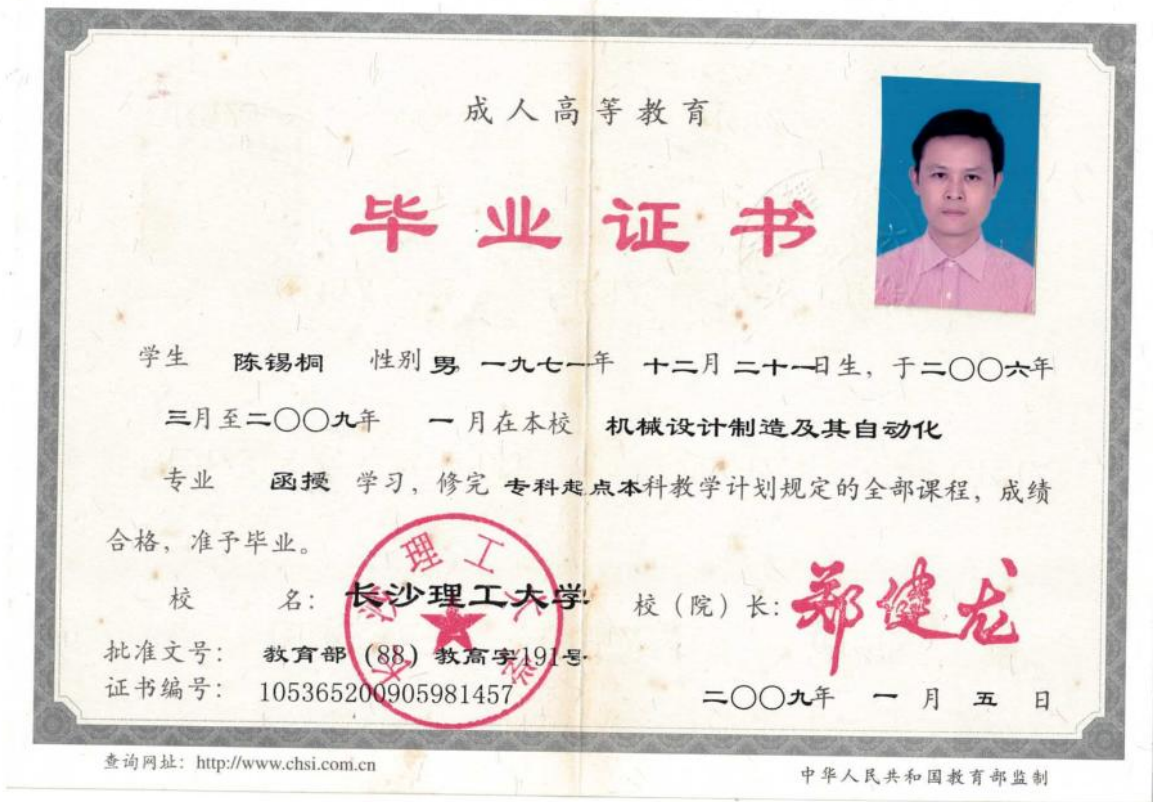 成人高等教育
毕业证书
学生 陈锡桐 性别 男，一九七一年 十二月 二十一日生，于二〇〇六年
三月至二〇〇九年 一月在本校 机械设计制造及其自动化
专业 函授 学习，修完 专科起点本科教学计划规定的全部课程，成绩
合格，准予毕业。
校 名：长沙理工大学 校（院）长：郑健龙
批准文号：教育部（88）教高字191号
证书编号：105365200905981457
二〇〇九年 一月 五 日
长沙理工大学
查询网址：http://www.chsi.com.cn
中华人民共和国教育部监制